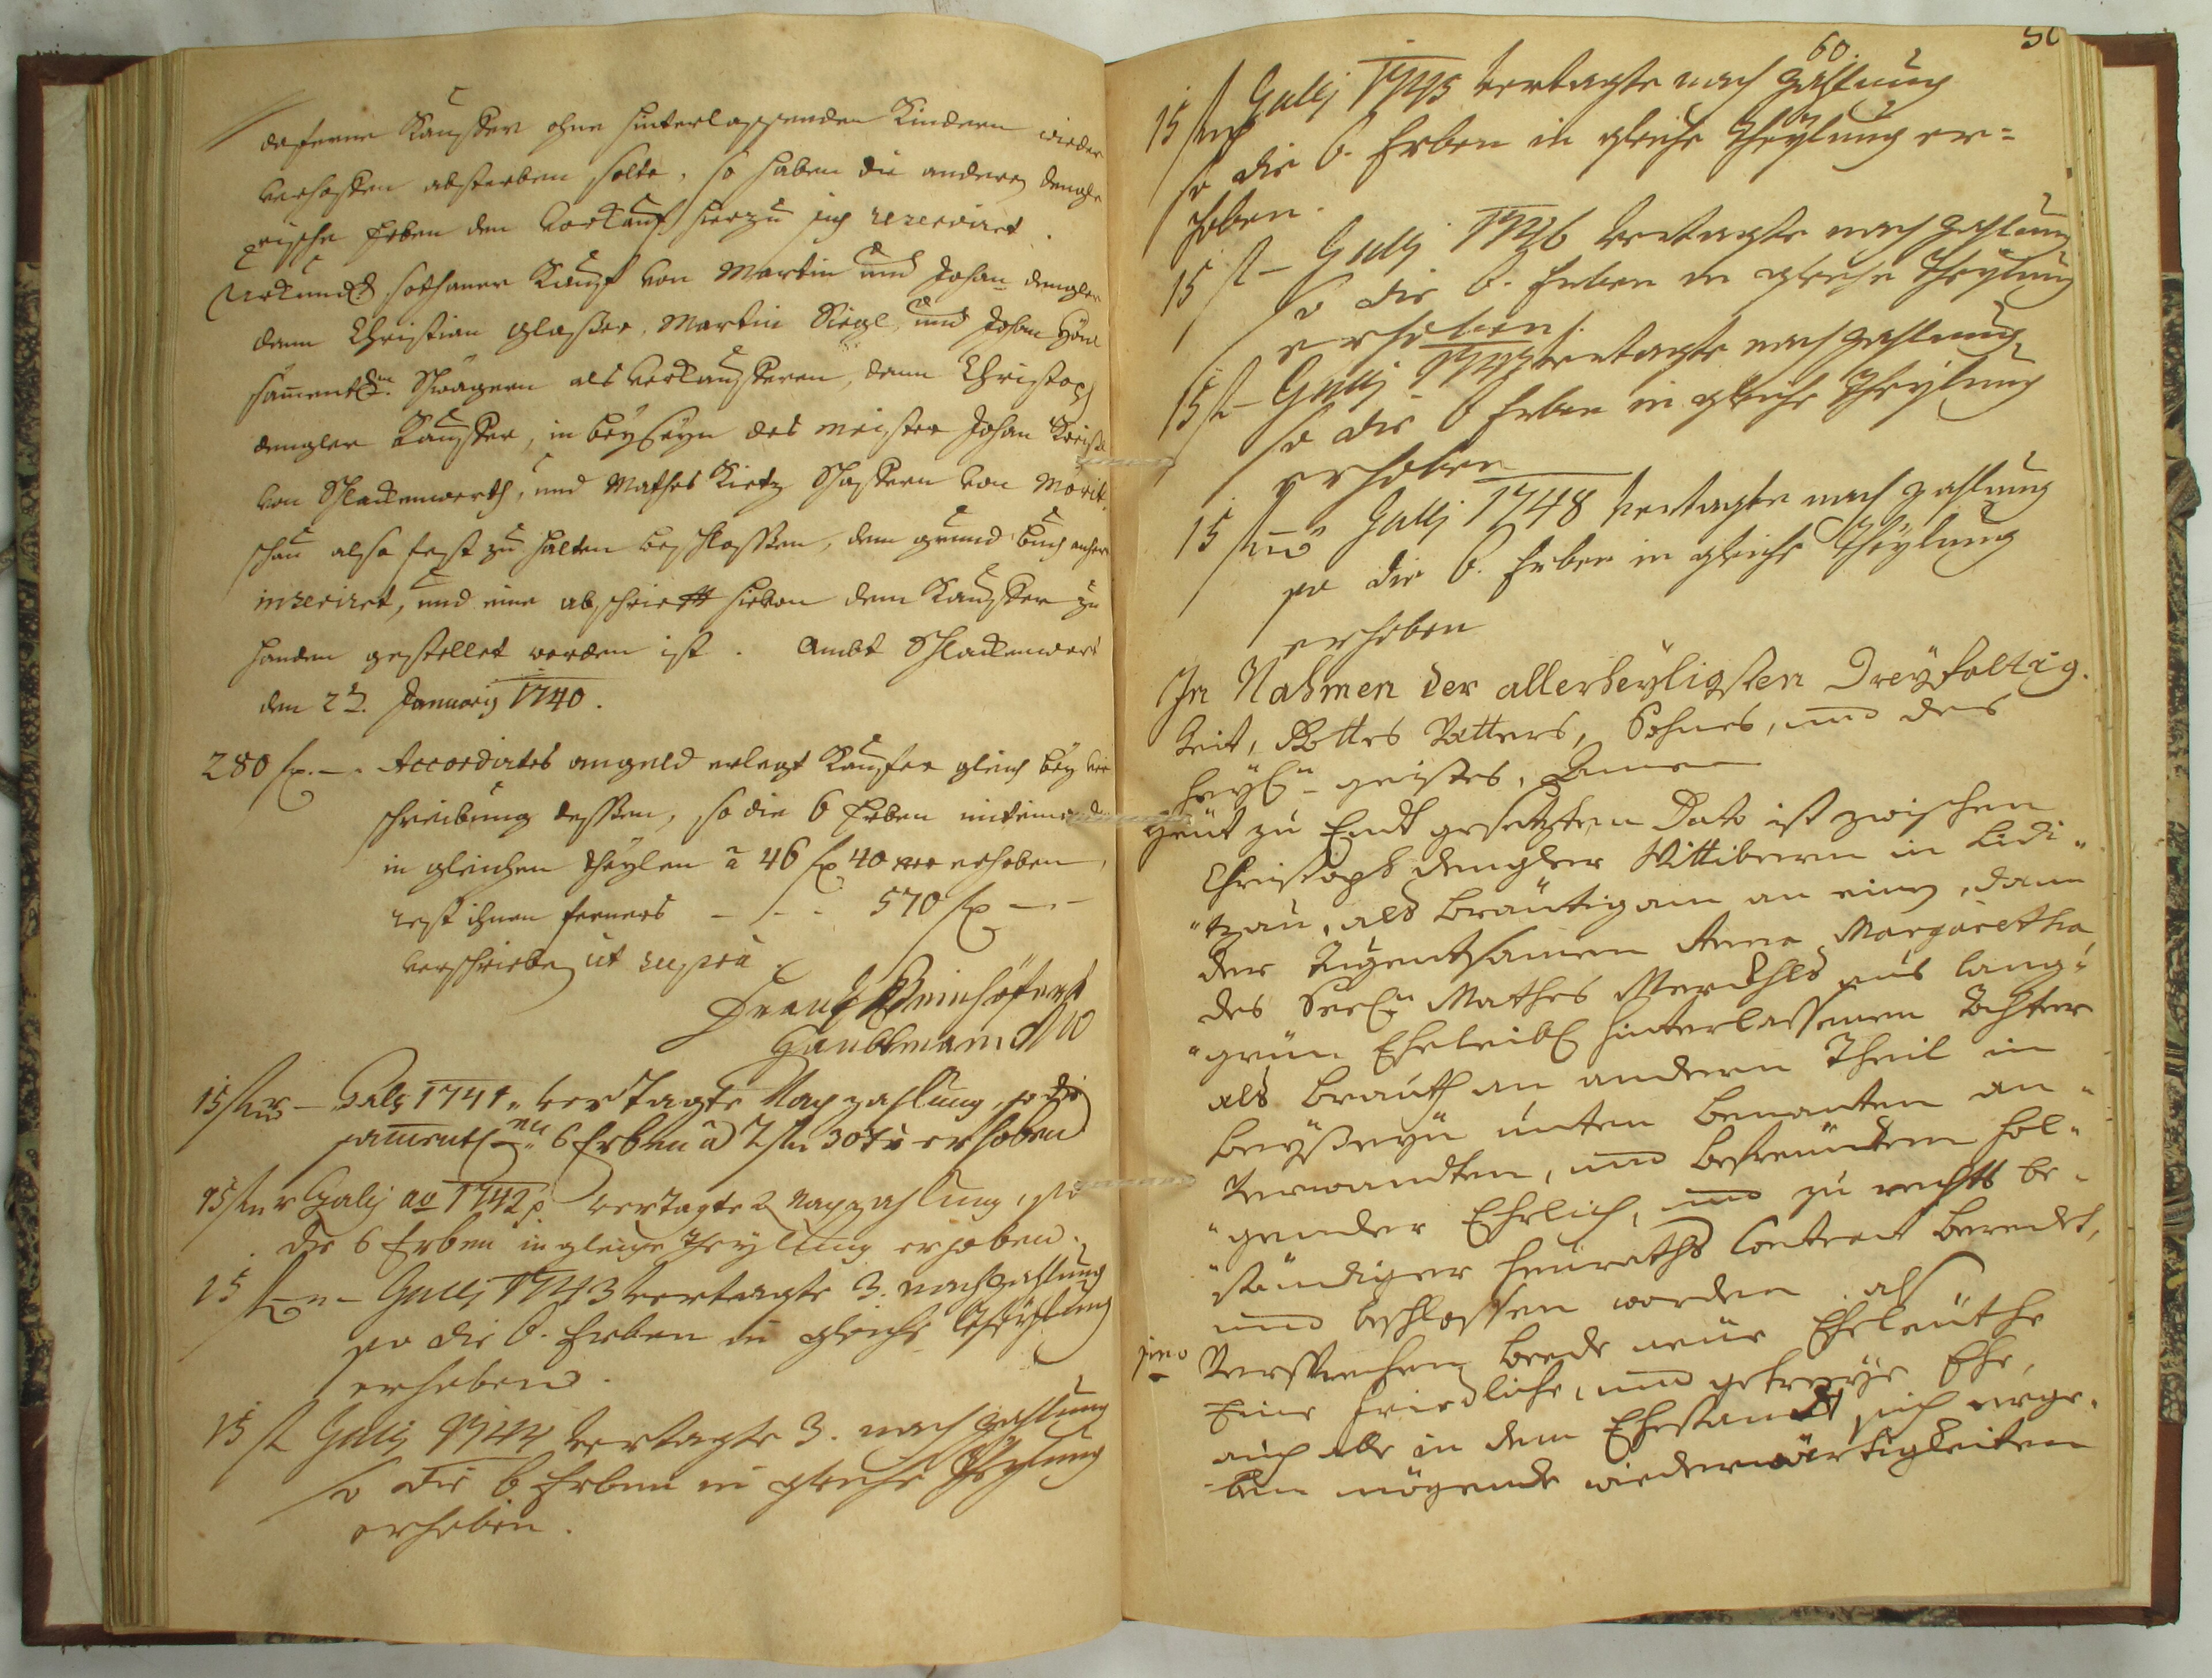 daferne Kauffer ohne hinterlassenden Kindern wieder
verhoffen absterben solte, so haben die anderen dengle
rische Erben den Vorkauf hierzu sich reserviret.
Urkundt. sothaner Kauf von Martin und Johan dengler
dann Christian Glaßer, Martin Siegl, und Johan
sament. Schwägern als Verkaufferen, dann Christoph
dengler Kauffer, in beyseyn des Meister Johan
von Schlackenwerth, und Mathes Dietz Schaffern von Morit
schau also fest zu halten beschlossen, dem grund Buch
inseriret, und eine abschrifft hievon dem Kauffer zu
handen gestellet worden ist. Ambt Schlackenwert
den 2t. Januarij 1740.
280 fl. – . Accordirtes angeld erlegt Kauffer gleich bey ver
schreibung dessen, so die 6 Erben miteinander
in gleichen theylen a 46 fl 40 xer erhoben,
rest ihnen ferners – – – 570 fl – –
verschrieben ut supra
Haubtmann
15 – Galj 1741. vertagte Nachzahlung, so die
sament. 6 Erben à 2 fl 30 xr erhoben
15 Galj ao 1742 vertagte 2 Nachzahlung, so
die 6 Erben in gleiche theyllung erhoben.
15 – Gallj 1743 vertagte 3. nachzahlung
so die 6. Erben in gleiche theyllung
erhoben.
15 fl Gallj 1744 vertagte 3. nachzahlung
so die 6 Erben in gleiche theylung
erhoben.
60.
15 Gallj 1745 vertagte nach zahlung
so die 6. Erben in gleiche theylung er=
hoben.
15 fl – Gallj 1746 vertagte nach zahlung
so die 6. Erben in gleiche theylung
erhoben.
15 fl – Gallj 1747 vertagte nachzahlung,
so die 6 Erben in gleiche theylung
erhoben
15 Gallj 1748 vertagte nach zahlung
so die 6. Erben in gleiche theylung
erhoben
In Nahmen der allerheyligsten Dreyfaltig.
keit, Gottes Vatters, Sohnes, und des
heyl. geistes, Amen
Heut zu Endt gesetzten Dato ist zwischen
Christoph dengler Wittibern in Lidi"
"tzau, als Bräutigam an einen, dann
der Tugentsamen Anna Margaretha,
des Seel. Mathes aus lang"
"grün Eheleibl. hinterlassenen Tochter
als Brauth an andern Theil in
beyßeyn unten benanten an"
verwandten, und befreundten fol"
"gender Ehrlich, und zu rechts be"
"ständiger Heuraths Contract beredet,
und beschlossen worden als
pimo Versprechen beede neue Eheleuthe
Eine friedliche, und getreue Ehe,
auch alle in dem Ehestandt sich erge"
"ben mögende wiederwärtigkeiten